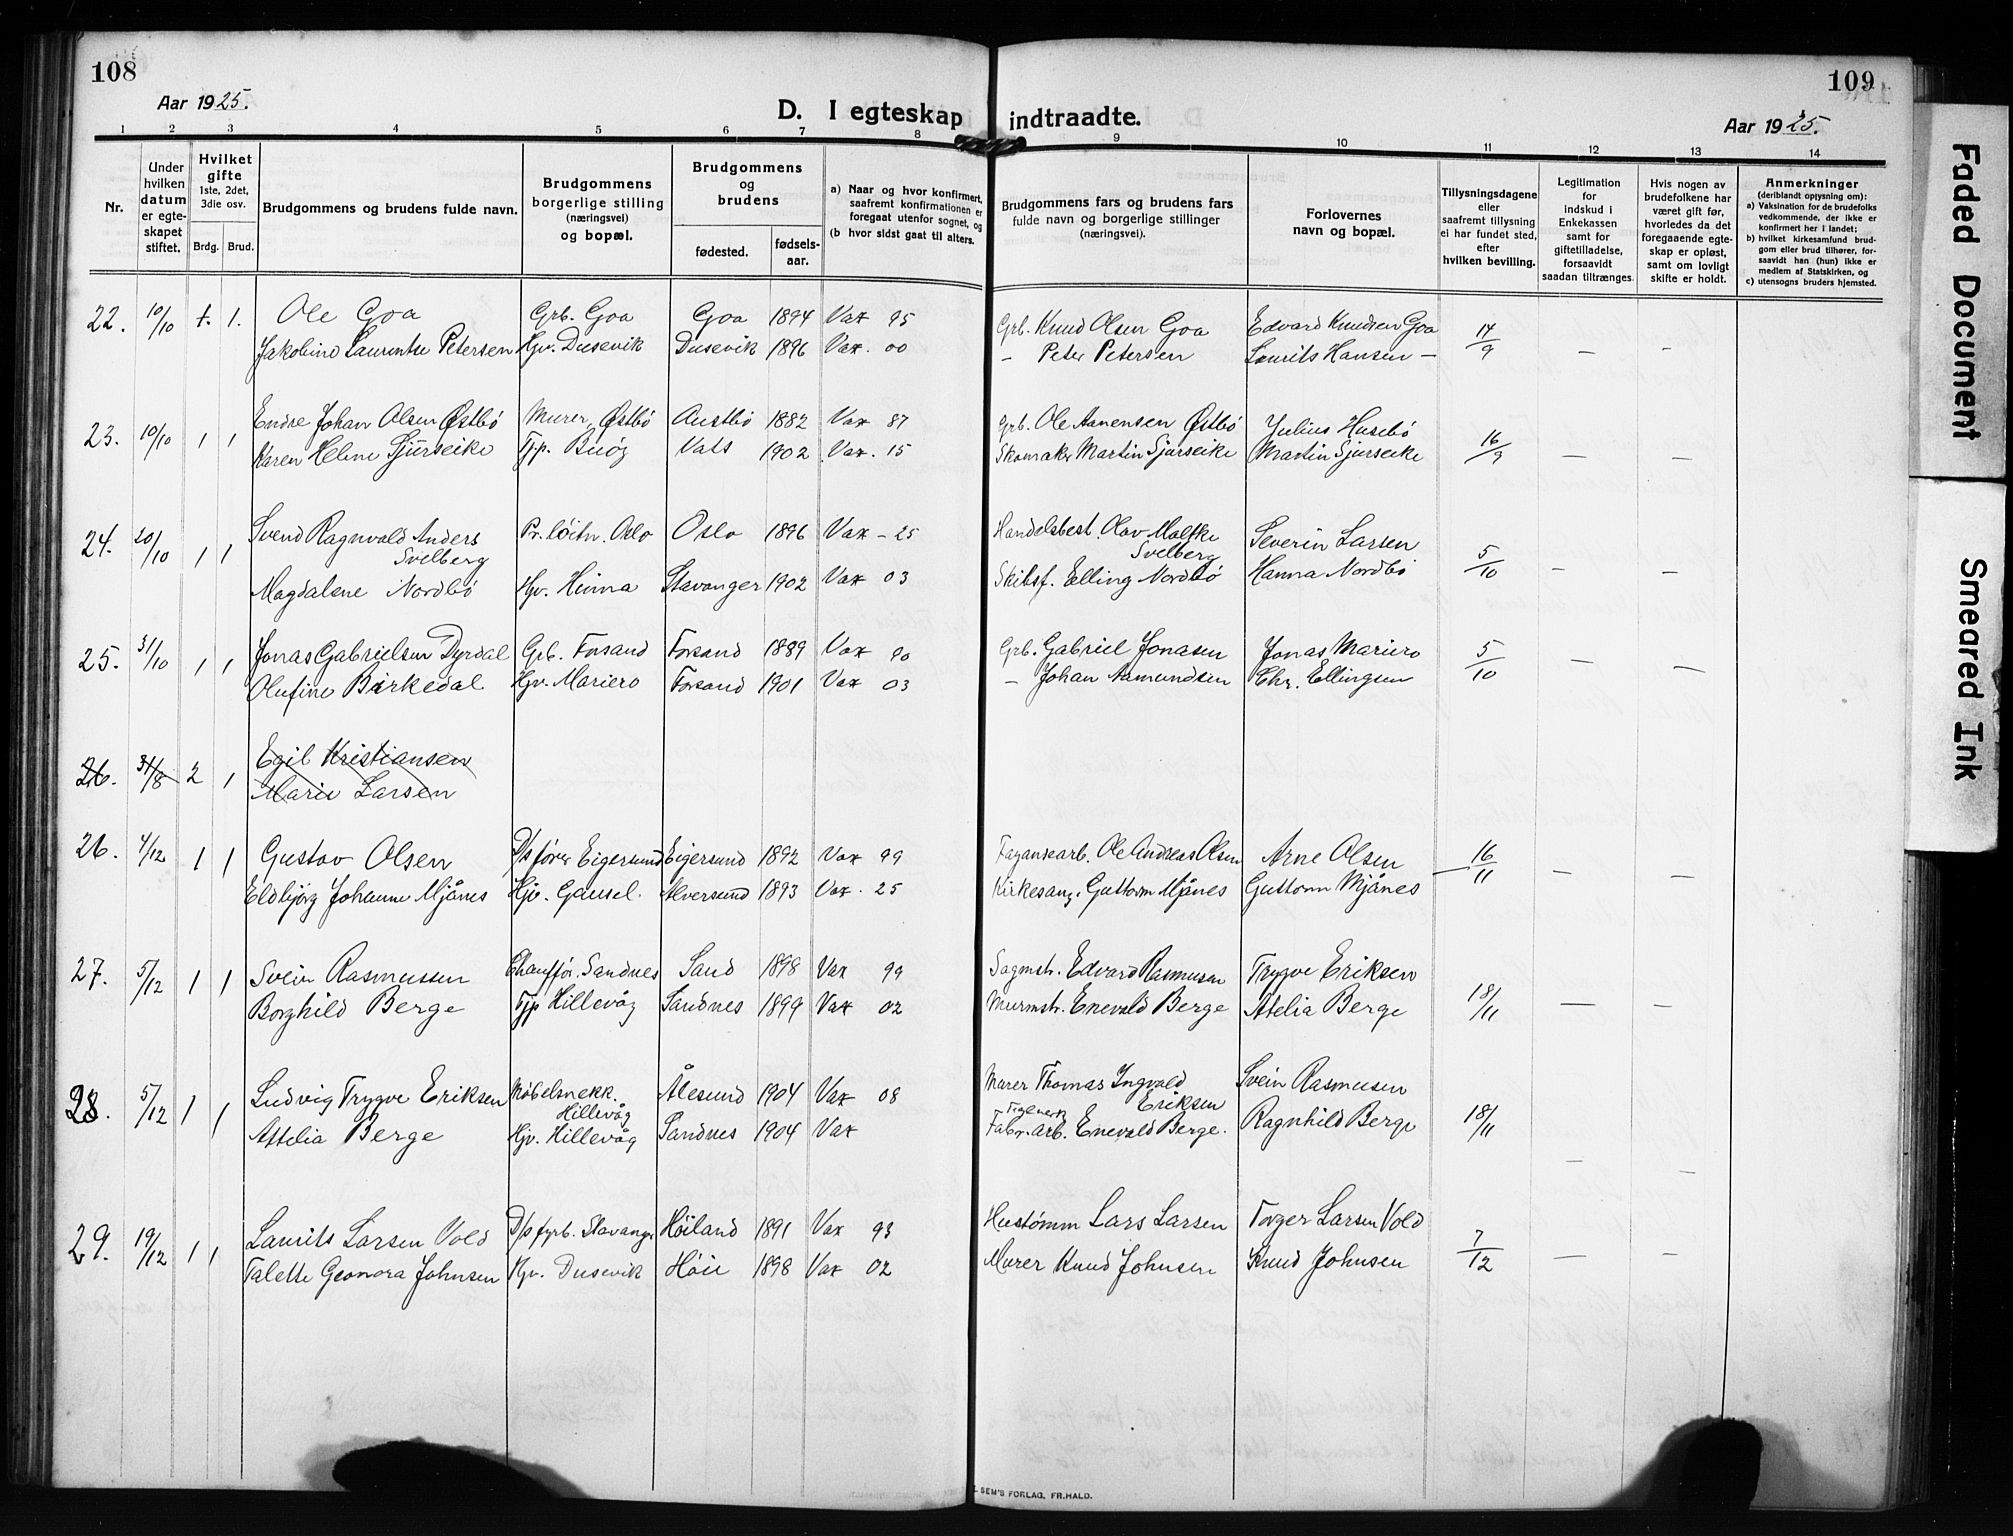 108
Aar 1925.
D. I egteskap indtraadte.
109
Aar 1925.
1 2 3 4 5 6 7 8 9 10 11 12 13 14
Nr.
Under hvilken datum er egteskapet stiftet.
Hvilket gifte 1ste, 2det, 3die osv.
Brdg. Brud.
Brudgommens og brudens fulde navn.
Brudgommens borgerlige stilling (næringsvei) og bopæl.
Brudgommens og brudens
fødested. fødselsaar.
a) Naar og hvor konfirmert, saafremt konfirmationen er foregaat utenfor sognet, og
(b hvor sidst gaat til alters.
Brudgommens fars og brudens fars fulde navn og borgerlige stillinger (næringsvei).
Forlovernes navn og bopæl.
Tillysningsdagene eller saafremt tillysning ei har fundet sted, efter hvilken bevilling.
Legitimation for indskud i Enkekassen samt for giftetilladelse, forsaavidt saadan tiltrænges.
Hvis nogen av brudefolkene har været gift før, hvorledes da det foregaaende egteskap er opløst, samt om lovligt skifte er holdt.
Anmerkninger (deriblandt opysning om):
a) Vaksination for de brudefolks vedkommende, der ikke er konfirmert her i landet;
b) hvilket kirkesamfund brudgom eller brud tilhører, forsaavidt han (hun) ikke er medlem af Statskirken, og
c) utensogns bruders hjemsted.
22. 10/10 1. 1. Ole Goa Grb. Goa Goa 1894 Vax 95 Grb. Knud Olsen Goa Edvard Knudsen Goa 14/9
Jakobine Laurentse Petersen Hjv. Dusevik Dusevik 1896 Vax. 00 – Peter Petersen Laurits Hansen – – –
23. 10/10 1 1 Endre Johan Olsen Østbö Murer, Østbö Austbö 1882 Vax 87 Grb. Ole Aanensen Østbö Julius Husebö 16/9
Karen Helene Sjurseike Tjp. Buöy Vats 1902 Vax. 15 Skomaker Martin Sjurseike Martin Sjurseike – –
24. 20/10 1 1 Svend Ragnvald Anders Pr. löitn. Oslo Oslo 1896 Vax – 25 Handelsbest. Olav Moltke Severin Larsen 5/10
Svelberg Svelberg
Magdalene Nordbö Hjv. Hinna Stavanger 1902 Vax 03 Skibsf. Elling Nordbö Hanna Nordbö – –
25. 31/10 1 1 Jonas Gabrielsen Dyrdal Grb. Forsand Forsand 1889 Vax 90 Grb. Gabriel Jonasen Jonas Mariero 5/10
Olufine Birkedal Hjv. Mariero Forsand 1901 Vax 03 – Johan Aamundsen Chr. Ellingsen – –
26. 31/8 2 1 Egil Kristiansen
Marie Larsen
26. 4/12 1 1 Gustav Olsen D/s förer Eigersund Eigersund 1892 Vax 99 Fajansearb. Ole Andreas Olsen Arne Olsen 16/11
Eldbjörg Johanne Mjånes Hjv. Gausel. Alversund 1893 Vax. 25 Kirkesang. Guttorm Mjånes Guttorm Mjånes – –
27. 5/12 1 1 Svein Rasmussen Chaufför. Sandnes Sand 1898 Vax 99 Sagmstr. Edvard Rasmussen Trygve Eriksen 18/11
Borghild Berge Tjp Hillevåg Sandnes 1899 Vax 02 Murmstr. Enevald Berge Atelia Berge – –
28. 5/12 1 1 Ludvig Trygve Eriksen Möbelsnekk. Ålesund 1904 Vax 08 Murer Thomas Ingvald Svein Rasmusen
Hillevåg Eriksen
Attelia Berge Hjv. Hillevåg Sandnes 1904 Vax Teglverk Fabr. Arb. Enevald Berge. Ragnhild Berge 18/11 – –
29. 19/12 1 1 Laurits Larsen Vold D/s fyrb. Stavanger Höiland 1891 Vax 93 Hustömm Lars Larsen Torger Larsen Vold 7/12
Talette Geonora Johnsen Hjv. Dusevik Höie 1898 Vax 02 Murer Knud Johnsen Knud Johnsen – –
SEM'S FORLAG, FR.HALD.
Faded Document
Smeared Ink